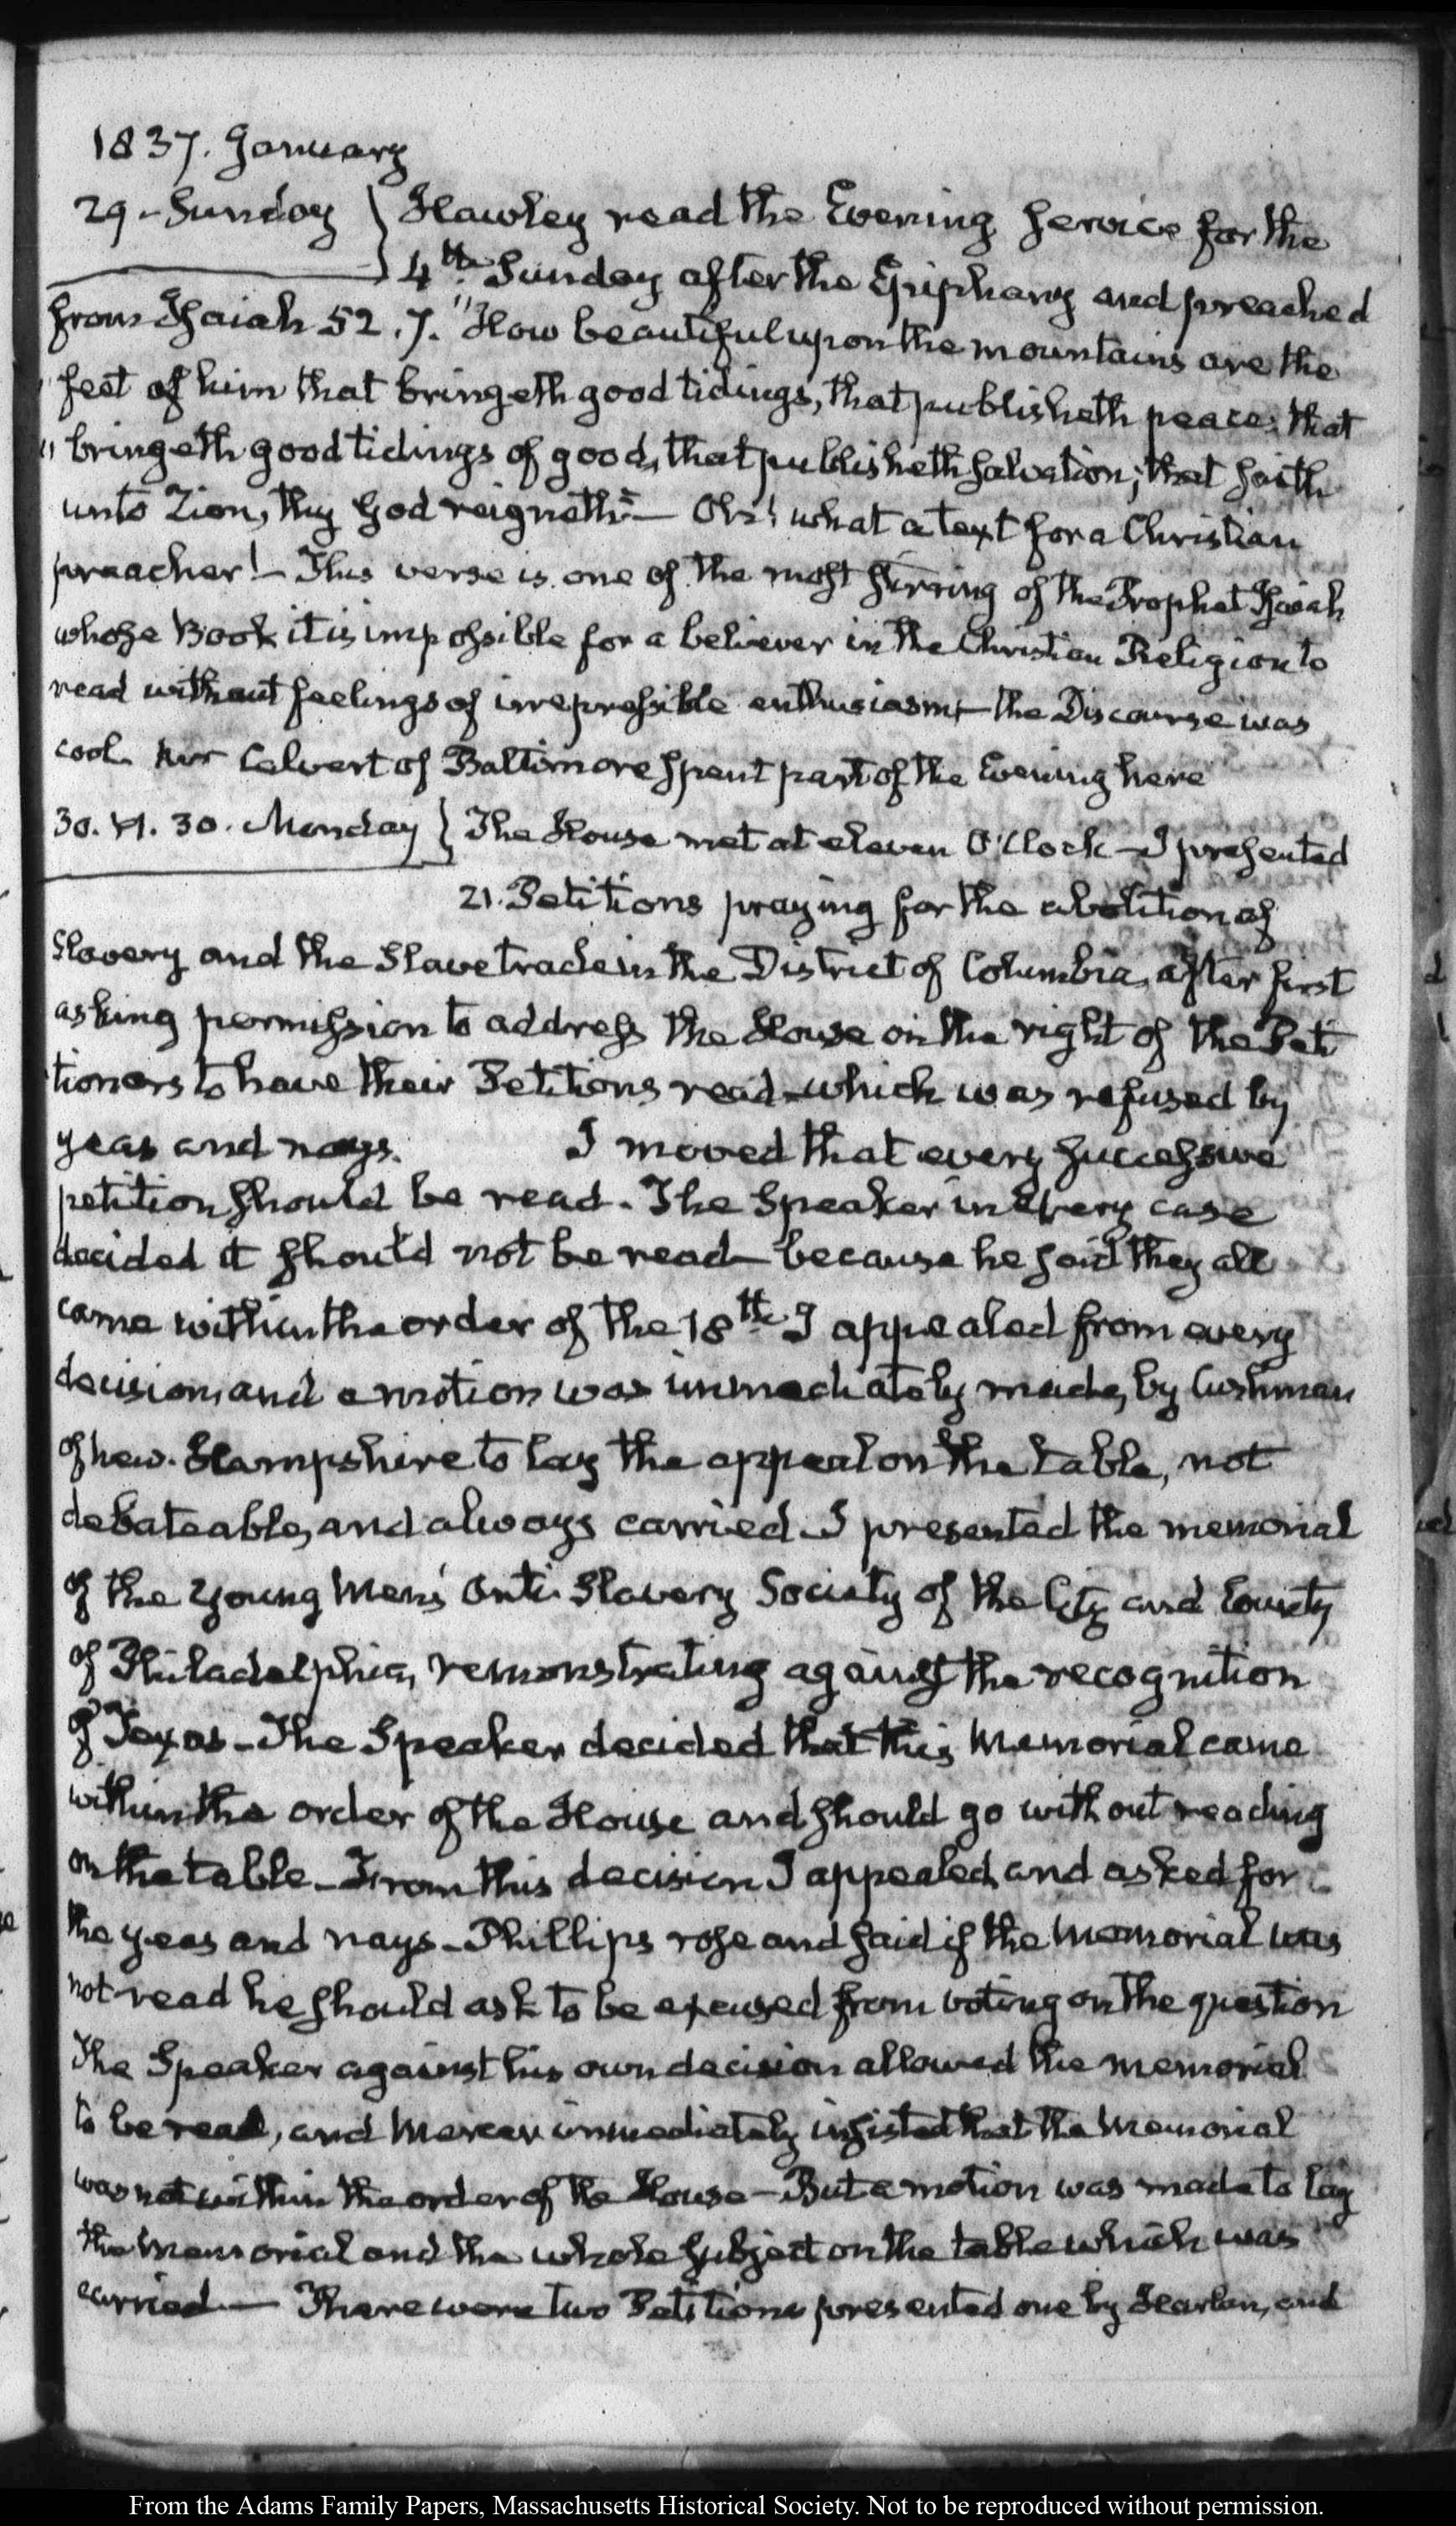 1837. January
29 - Sunday } Hawley read the Evening Service for the
4th. Sunday after the Epiphany and preached
from Isaiah 52.7. "How beautiful upon the mountains are the
" feet of him that bringeth good tidings, that publisheth peace; that
" bringeth good tidings of good, that publisheth salvation; that saith
unto Zion, thy God reigneth" — Oh! what a text for a Christian
preacher! — This verse is one of the most stirring of the Prophet Isaiah
whose Book it is impossible for a believer in the Christian Religion to
read without feelings of irrepressible enthusiasm — the Discourse was
cool. Mr Calvert of Baltimore spent part of the Evening here
30. VI. 30. Monday } The House met at eleven O'Clock — I presented
21. Petitions praying for the abolition of
Slavery and the Slave trade in the District of Columbia, after first
asking permission to address the House on the right of the Peti
tioners to have their Petitions read — which was refused by
yeas and nays. I moved that every successive
petition should be read. The Speaker in every case
decided it should not be read — because he said they all
came within the order of the 18th. I appealed from every
decision, and a motion was immediately made, by Cushman
of New-Hampshire to lay the appeal on the table, not
debateable, and always carried. I presented the memorial
of the Young Men's Anti Slavery Society of the City and County
of Philadelphia, remonstrating against the recognition
of Texas — The Speaker decided that this Memorial came
within the order of the House and should go without reading
on the table — From this decision I appealed, and asked for
the yeas and nays — Phillips rose and said if the Memorial was
not read he should ask to be excused from voting on the question
The Speaker against his own decision allowed the memorial
to be read, and Mercer immediately insisted that the Memorial
was not within the order of the House — But a motion was made to lay
the Memorial and the whole subject on the table which was
carried — There were two Petitions presented one by Harlan, and
From the Adams Family Papers, Massachusetts Historical Society. Not to be reproduced without permission.